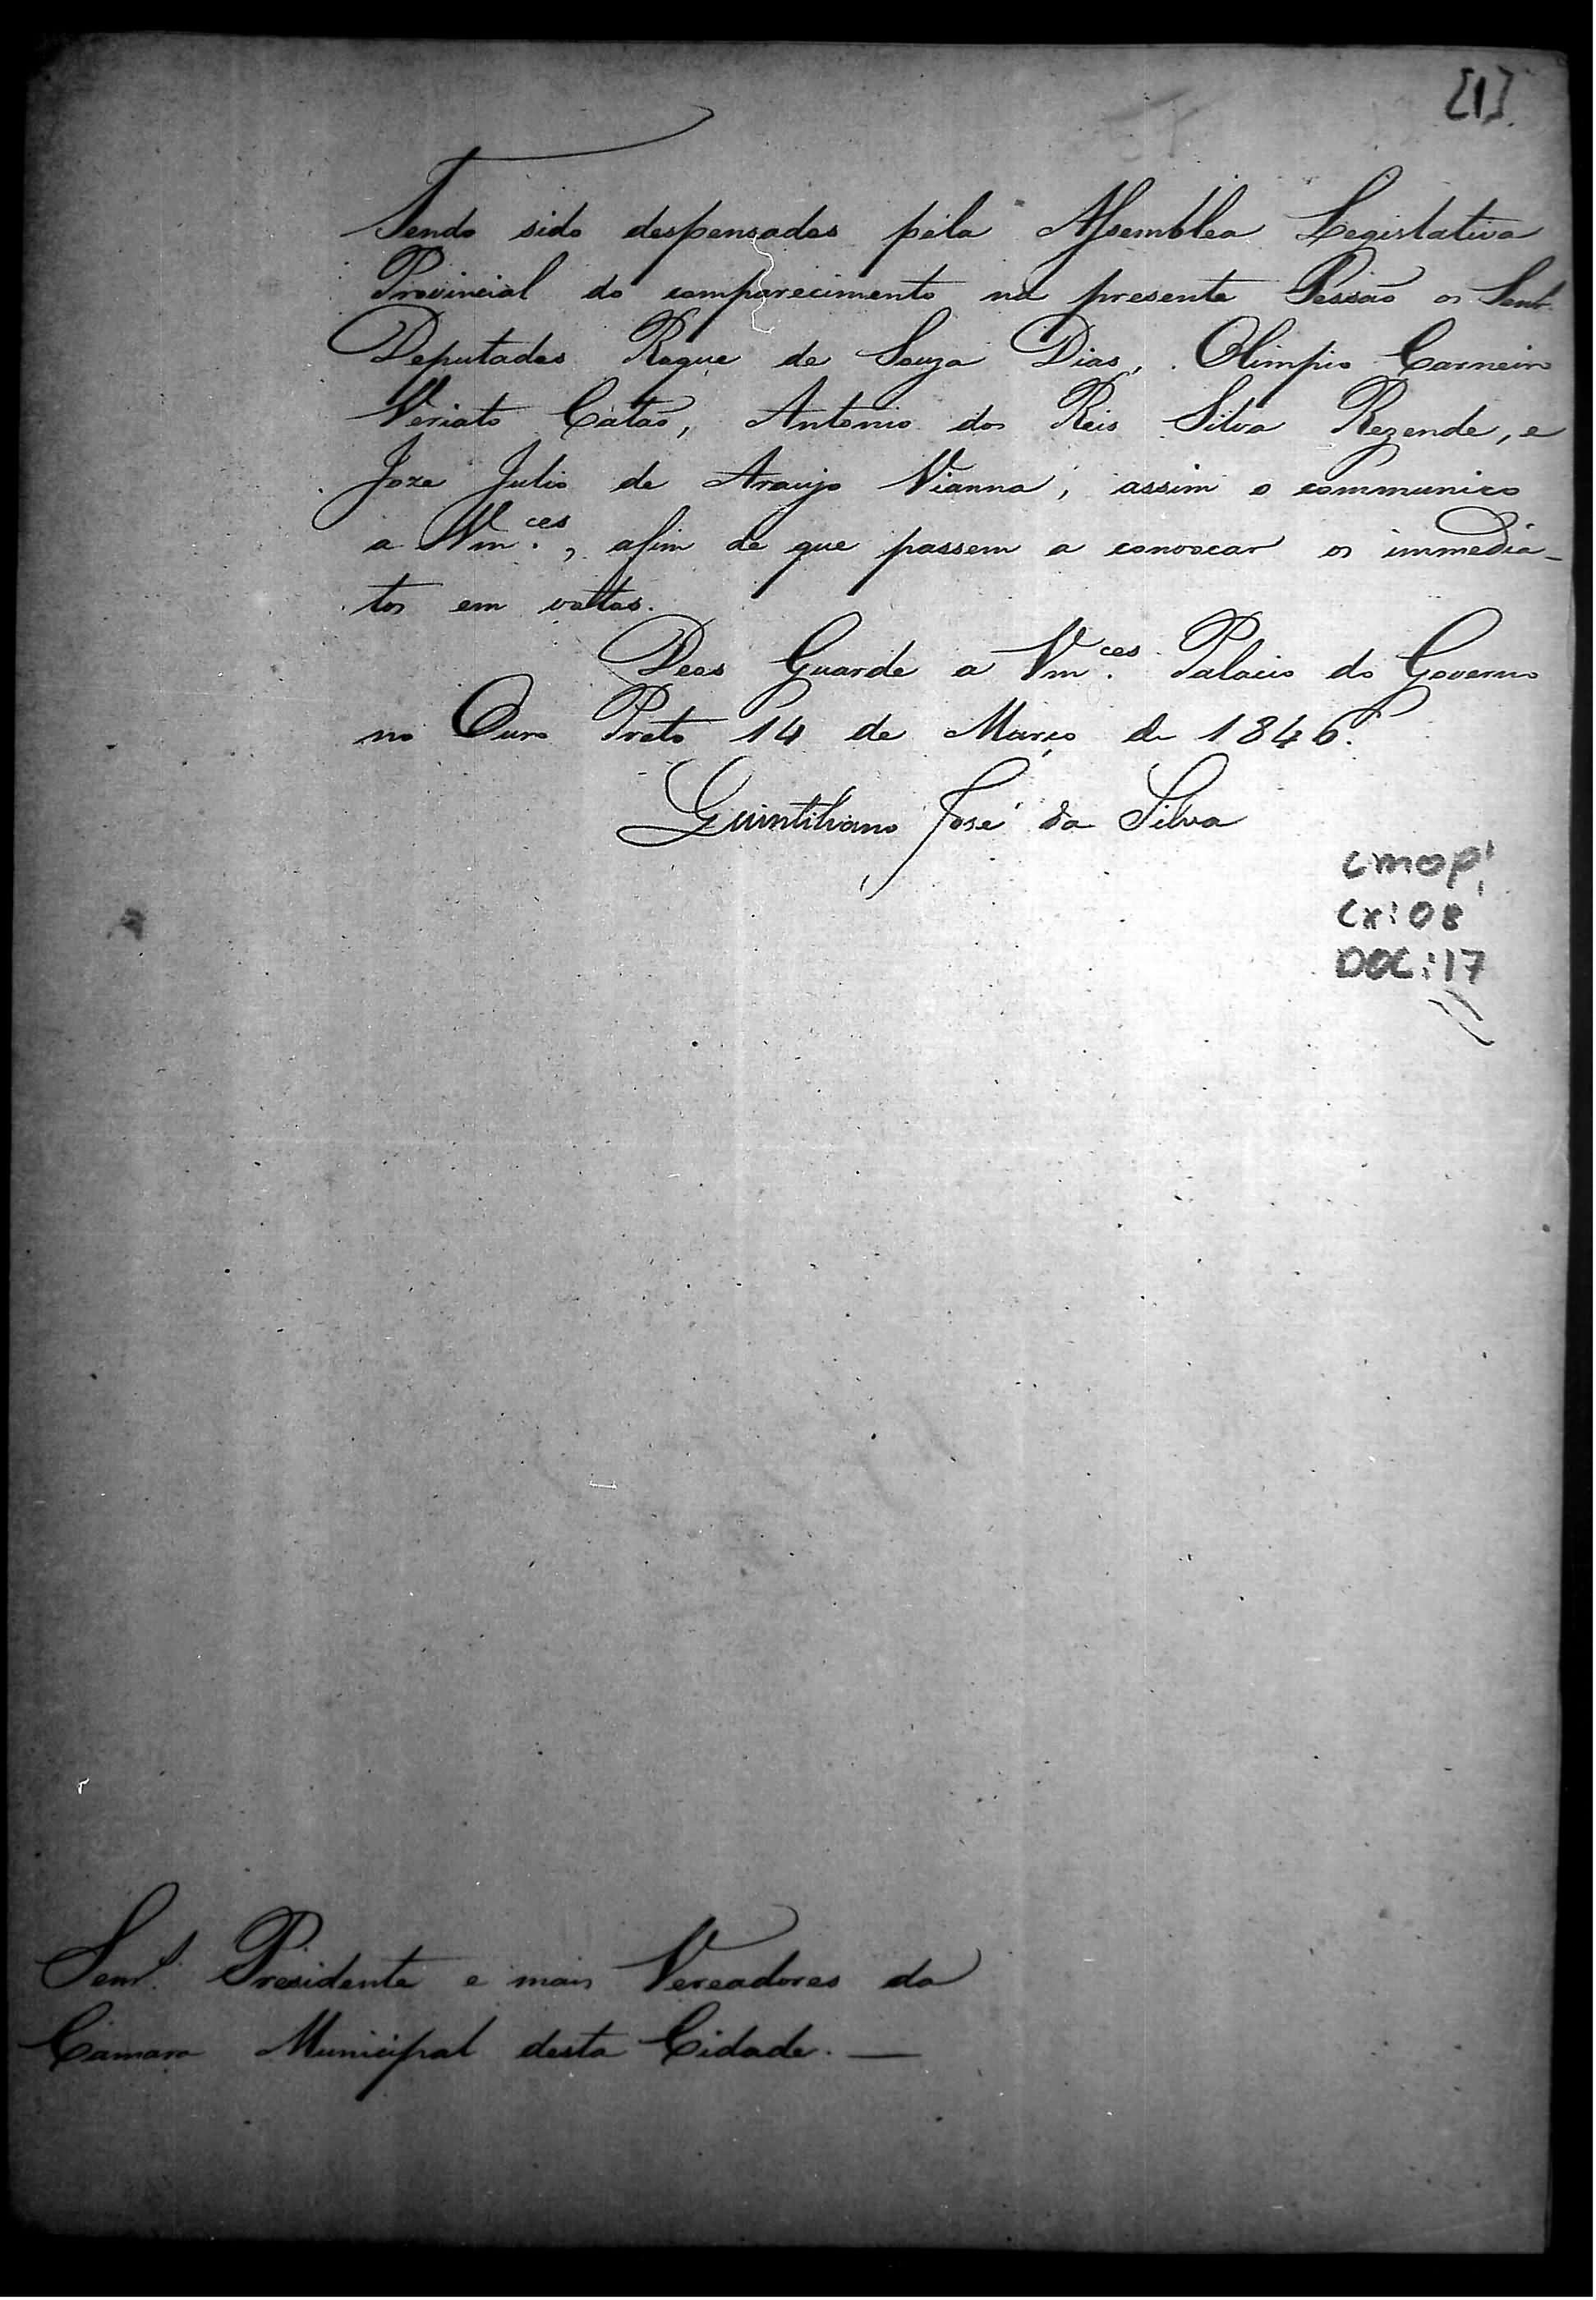 [1]
Tendo sido despensados pela Assemblea Legislativa
Provincial do comparecimento na presente Sessão os Senr.
Deputados Roque de Souza Dias, Olimpio Carneiro
Veriato Catão, Antonio dos Reis Silva Rezende, e
Joze Julio de Araujo Vianna, assim o communico
a Vm.ces, afim de que passem a convocar os immedia-
tos em vottos.
Deos Guarde a Vm.ces Palacio do Governo
no Ouro Preto 14 de Março de 1846.
Quintiliano José da Silva
CMOP
CX: 08
DOC: 17
Senr.s Presidente e mais Vereadores da
Camara Municipal desta Cidade. —